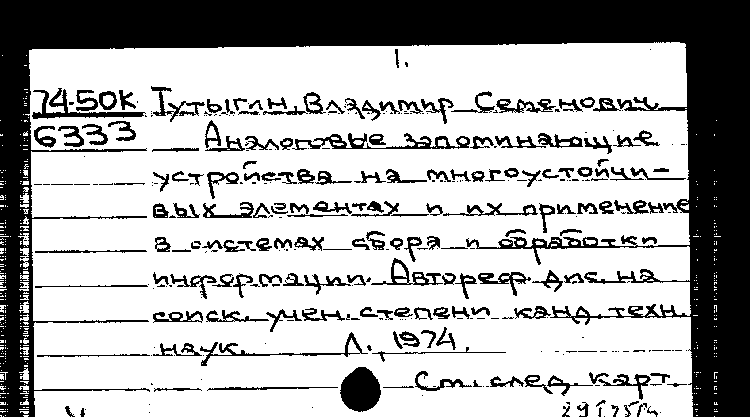 1.
74-50К Тутыгин, Владимир Семенович
6333 Аналоговые запоминающие
устройства на многоустойчи-
вых элементах и их применение
в системах сбора и обработки
информации. Автореф. дис. на
соиск. учен. степени канд. техн.
наук. Л., 1974.
См. след. карт.